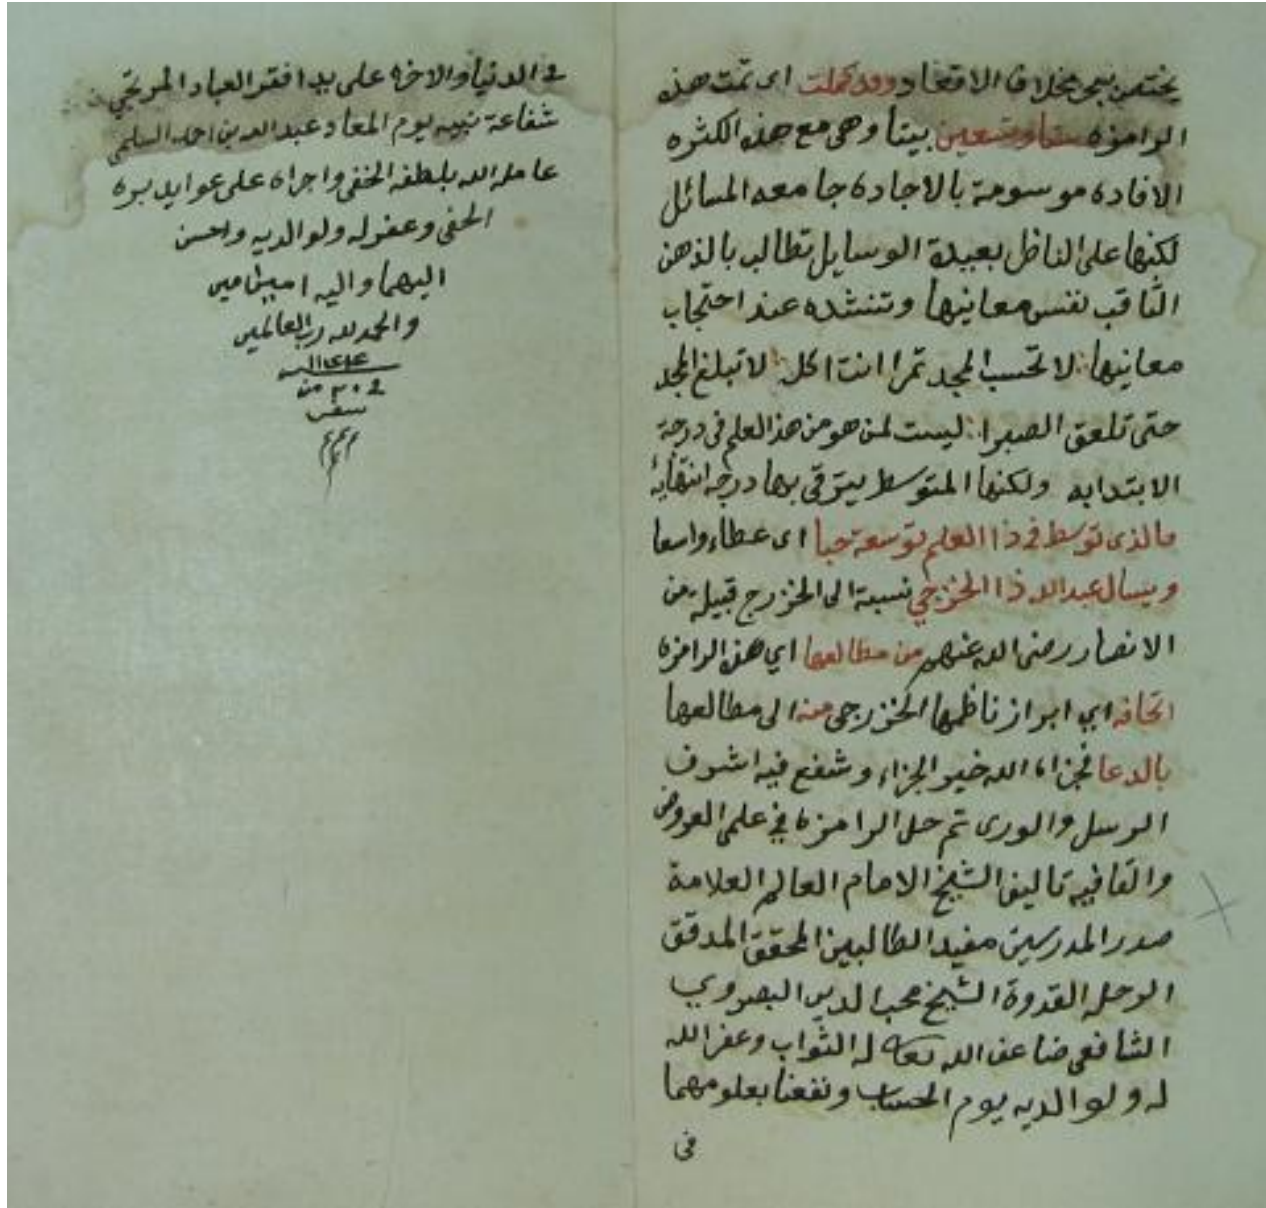 يختص ببحر بخلاف الاقعاد وقد كملت اى تمت هذه
الرامزه ستا وتسعين بيتا وهى مع هذه الكثره
الافاده موسومة بالاجادة جامعه المسائل
لكنها على الناظر بعيدة الوسايل تطالب بالذهن
الثاقب نفس معانيها وتنشده عند احتجاب
معانيها لا تحسب المجد تمرا انت اكله لا تبلغ المجد
حتى تلعق الصبرا ليست لمن هو من هذ العلم فى درجة
الابتدايه ولكنها المتوسط يترقى بها درجه انتهايه
مالذى توسط فى ذا العلم توسعه حبا اى عطاء واسعا
ويسال عبد الله ذا الخزرجي نسبة الى الخزرج قبيلة من
الانصار رضى الله عنهم من مطالعها اي هذه الرامزه
اتحافه اي ابراز ناظمها الخزرجى منه الى مطالعها
بالدعا فجزاه الله خير الجزاء وشفع فيه اشرف
الرسل والورى تم حل الرامزه في علمى العروض
والقافيه تاليف الشيخ الامام العالم العلامة
صدر المدرسين مفيد الطالبين المحقق المدقق
الرحله القدوة الشيخ محب الدين البصروي
الشافعى ضاعف الله تعالى له الثواب وغفر الله
له ولوالديه يوم الحساب ونفعنا بعلومهما
فى
فى الدنيا والاخره على يد افقر العباد المرتجي
شفاعة نبيه يوم المعاد عبد الله بن احمد السلمى
عامله الله بلطفه الخفى واجراه على عوايد بره
الحفى وغفر له ولوالديه واحسن
اليهما واليه امين امين
والحمد لله رب العالمين
فى ٢٠ من
صفر